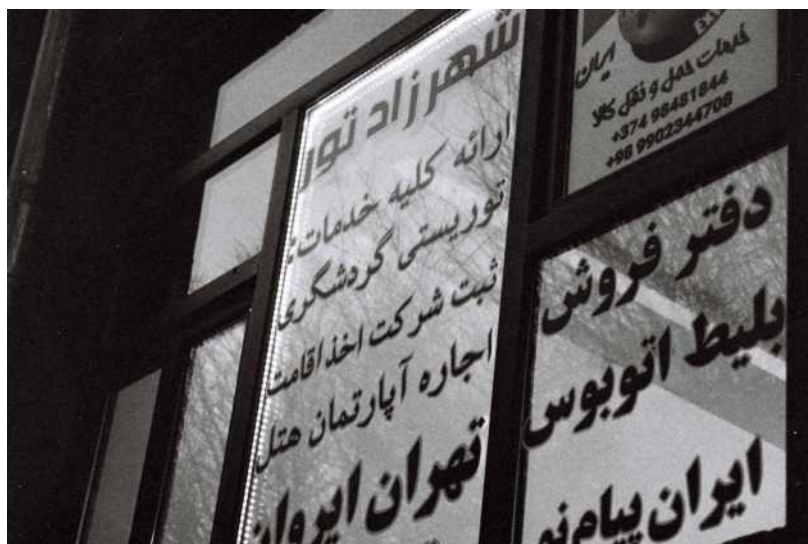 شهرزاد تور
ارائه کلیه خدمات:
توریستی گردشگری
ثبت شرکت اخذ اقامت
اجاره آپارتمان هتل
تهران ایروان
ایران
خدمات حمل و نقل کالا
+374 98481844
+98 9902344708
دفتر فروش
بلیط اتوبوس
ایران پیام